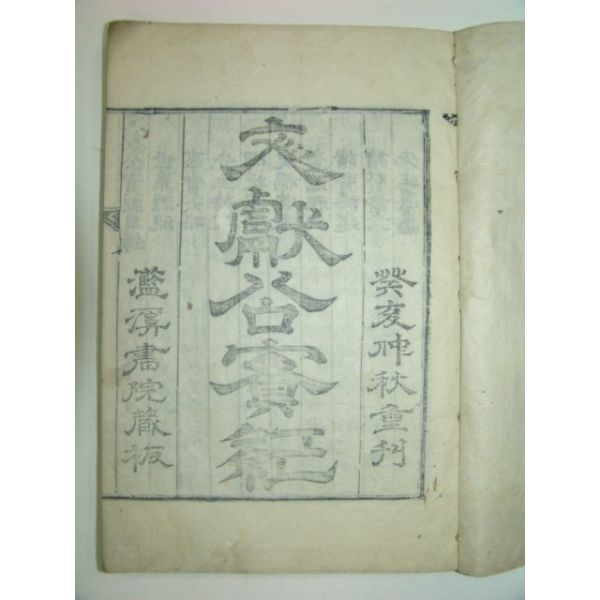 癸亥仲秋重刊
文獻公實紀
灆溪書院藏板